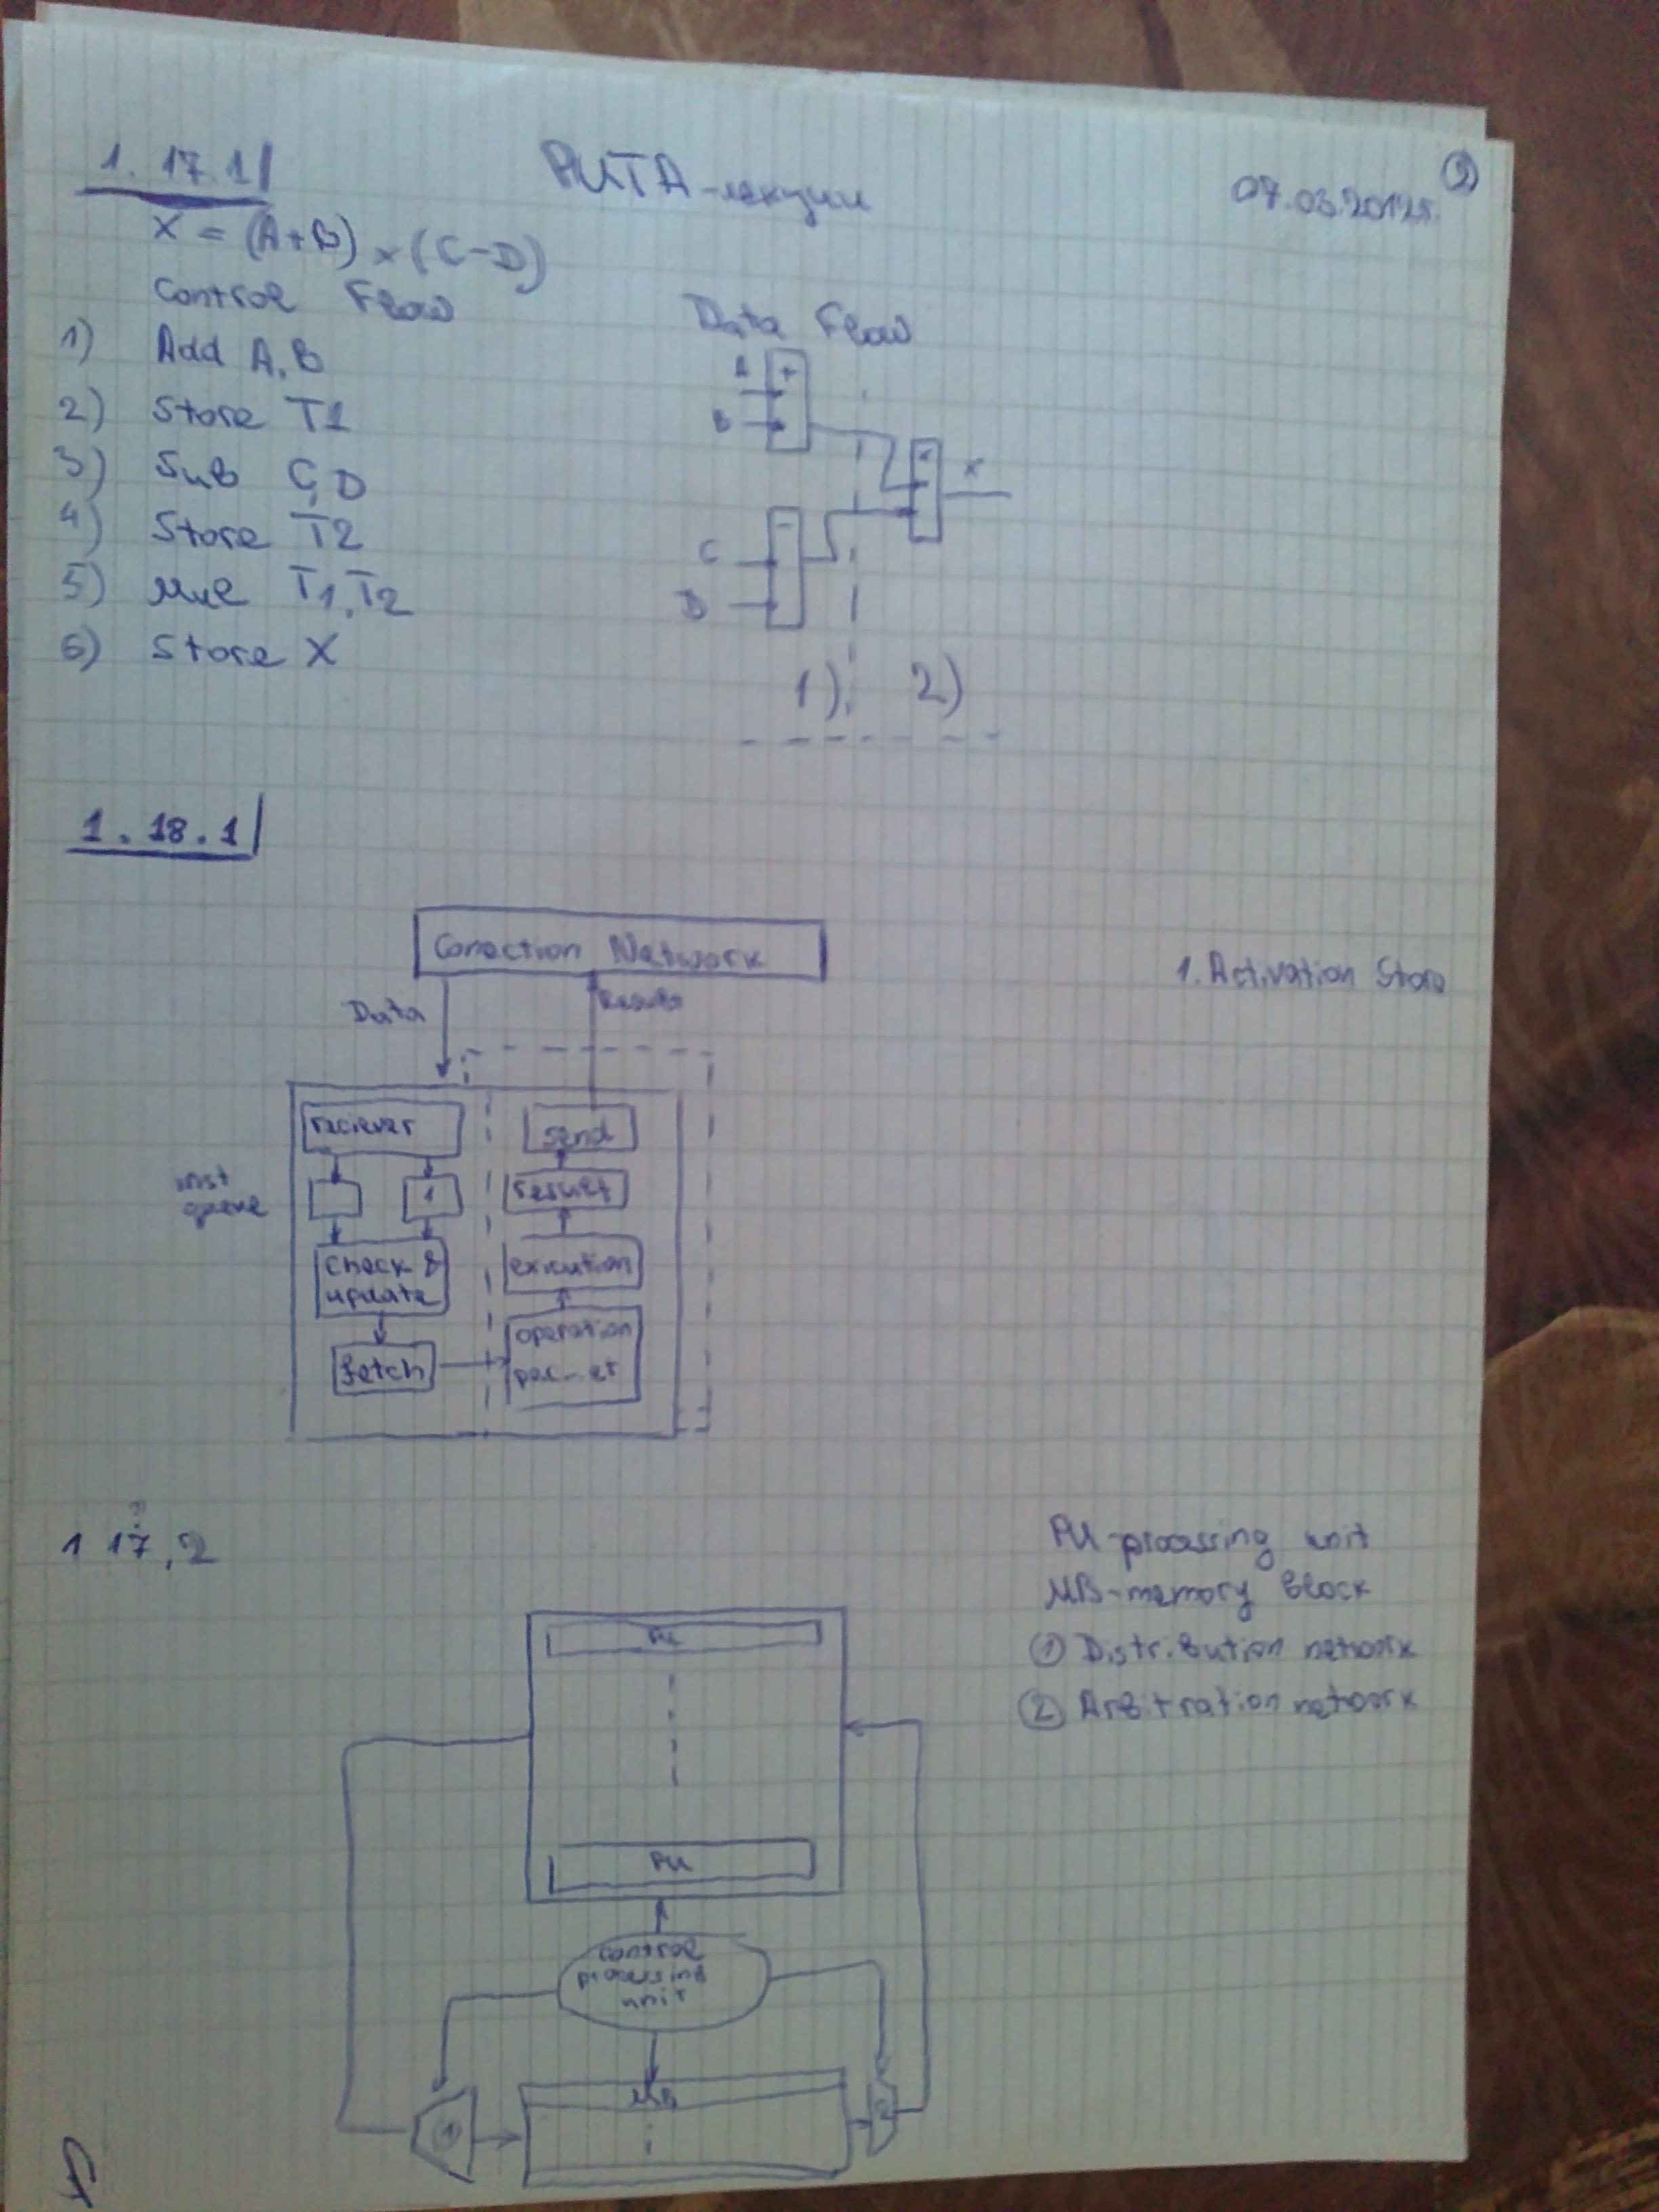 1. 17. 1
РИТА - лекции
07.03.2012г.
2
X = (A+B) × (C-D)
Control Flow
1) Add A, B
2) Store T1
3) Sub C, D
4) Store T2
5) Mul T1, T2
6) Store X
Data Flow
A
+
B
×
X
C
-
D
1)
2)
1. 18. 1
Conection Network
1. Activation Store
Data
Results
reciever
send
inst
queue
1
result
check &
update
exicution
operation
fetch
1 17, 2
?
PU - processing unit
MB - memory block
① Distribution network
② Arbitration network
PU
PU
control
processing
unit
MB
1
2